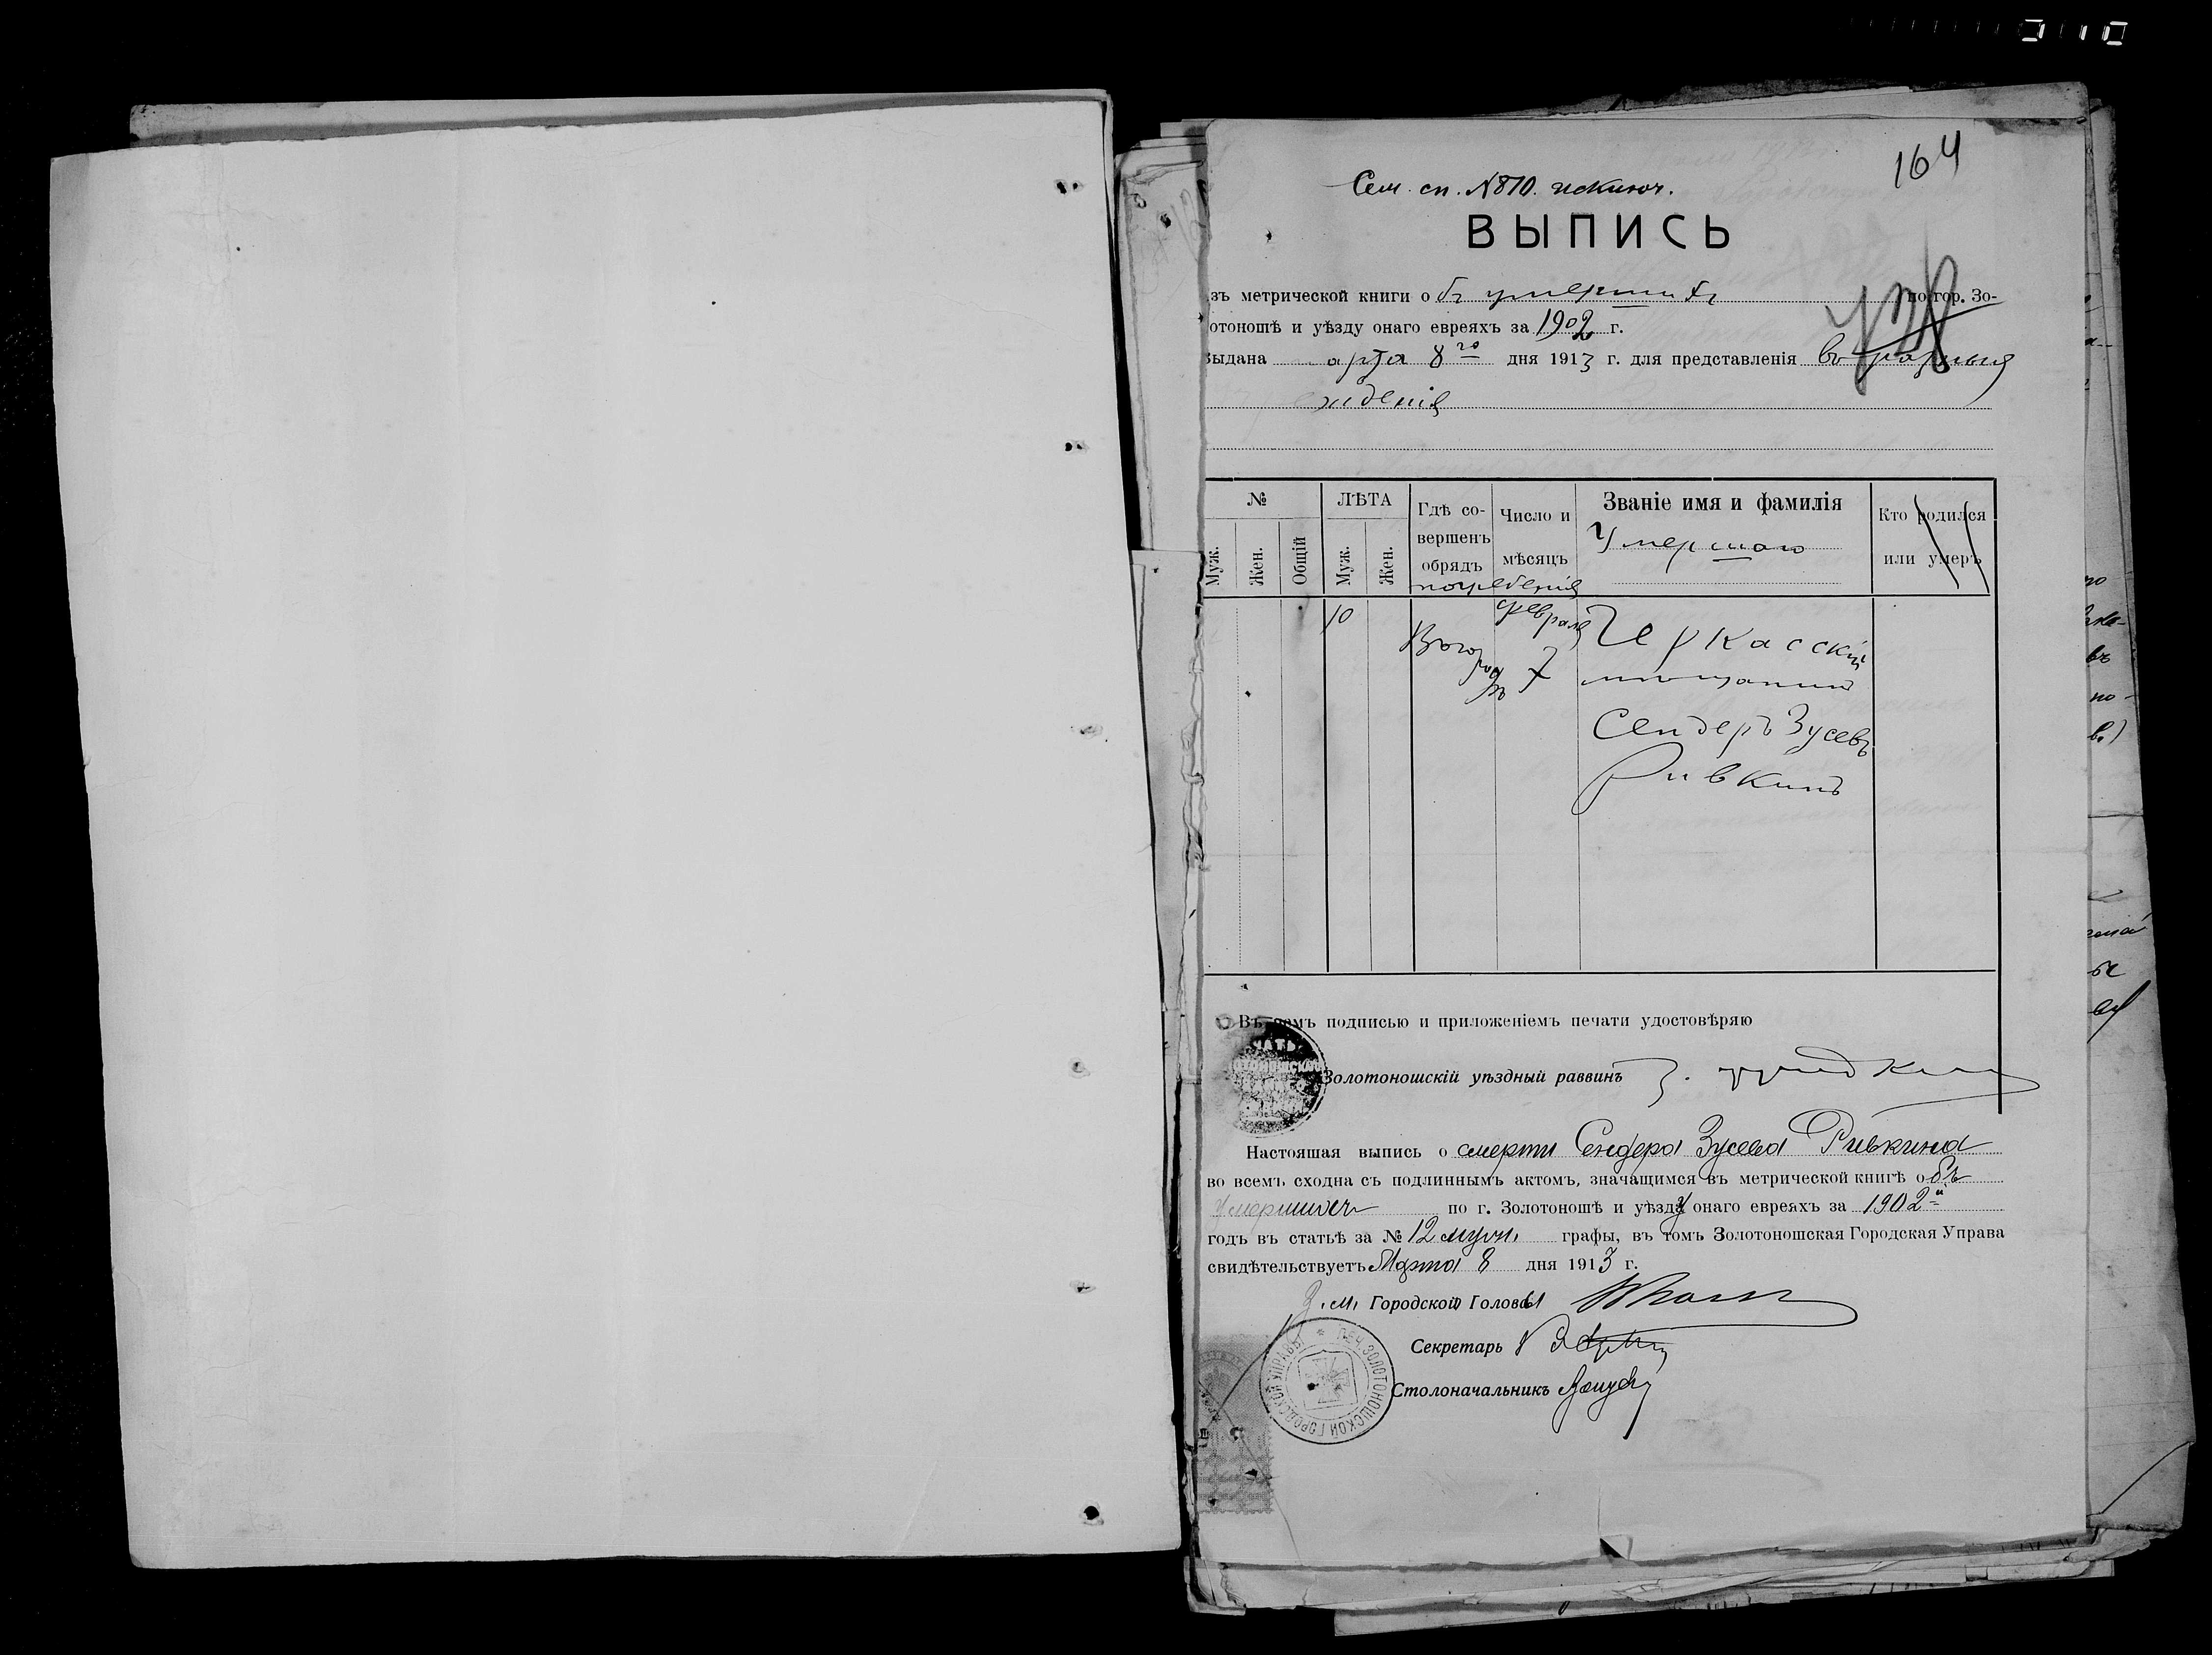 164
Сем. сп. №810. исключ.
ВЫПИСЬ
зъ метрической книги о бъ умершихъ по гор. Зо-
отоношѣ и уѣзду онаго евреяхъ за 1902 г.
Выдана арта 8го дня 1913 г. для представленія въ
№ ЛѢТА Гдѣ со- Число и Званіе имя и фамилія Кто родился
Муж. Жен. Общій Муж. Жен. вершенъ мѣсяцъ Умершаго или умеръ
обрядъ
погребенія
10 февраля Черкасскій
Въ городѣ 7 мѣщанинъ
Сендеръ Зусевъ
Ривкинъ
Въ чемъ подписью и приложеніемъ печати удостовѣряю
Золотоношскій уѣздный раввинъ
Настоящая выпись о смерти Сендера Зусева Ривкина
во всемъ сходна съ подлиннымъ актомъ, значащимся въ метрической книгѣ о бъ
Умершихъ по г. Золотоношѣ и уѣзду онаго евреяхъ за 1902-й
годъ въ статьѣ за № 12 муж. графы, въ томъ Золотоношская Городская Управа
свидѣтельствуетъ Марта 8 дня 1913 г.
З.м. Городской Головы
Секретарь
Столоначальникъ
ПЕЧ. ЗОЛОТОНОШСКОЙ ГОРОДСКОЙ УПРАВЫ